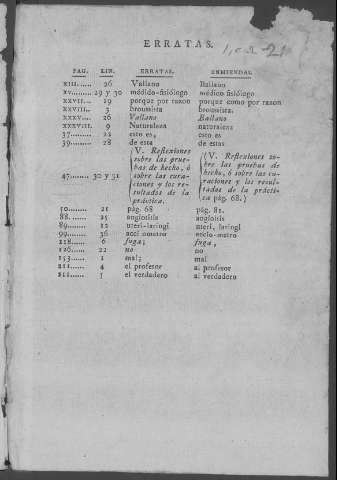 ERRATAS.
PAG. LIN. ERRATAS. ENMIENDAS.
XIII...... 26 Vallano Ballano
XV........ 29 y 30 médico-fisiólogo médico fisiólogo
XXVII... 29 porque por razon porque como por razon
XXVIII.. 3 broussista broussista.
XXXV.... 26 Vallano Ballano
XXXVII. 9 Naturaleza naturaleza
37....... 22 esto es, esto es
39....... 28 de esta de estas
47....... 30 y 31 (V. Reflexiones sobre las pruebas de hecho, ó sobre las curaciones y los resultados de la práctica. (V. Reflexiones sobre las pruebas de hecho, ó sobre las curaciones y los resultados de la práctica pág. 68.)
50....... 21 pág. 68 pág. 81.
88...... 25
89...... 12 uteri-laringi uteri, laringi
99...... 36
118..... 6 fuga; fuga,
126..... 22 no no
153..... 1 mal; mal
211..... 4 el profesor al profesor
212..... 5 el verdadero al verdadero